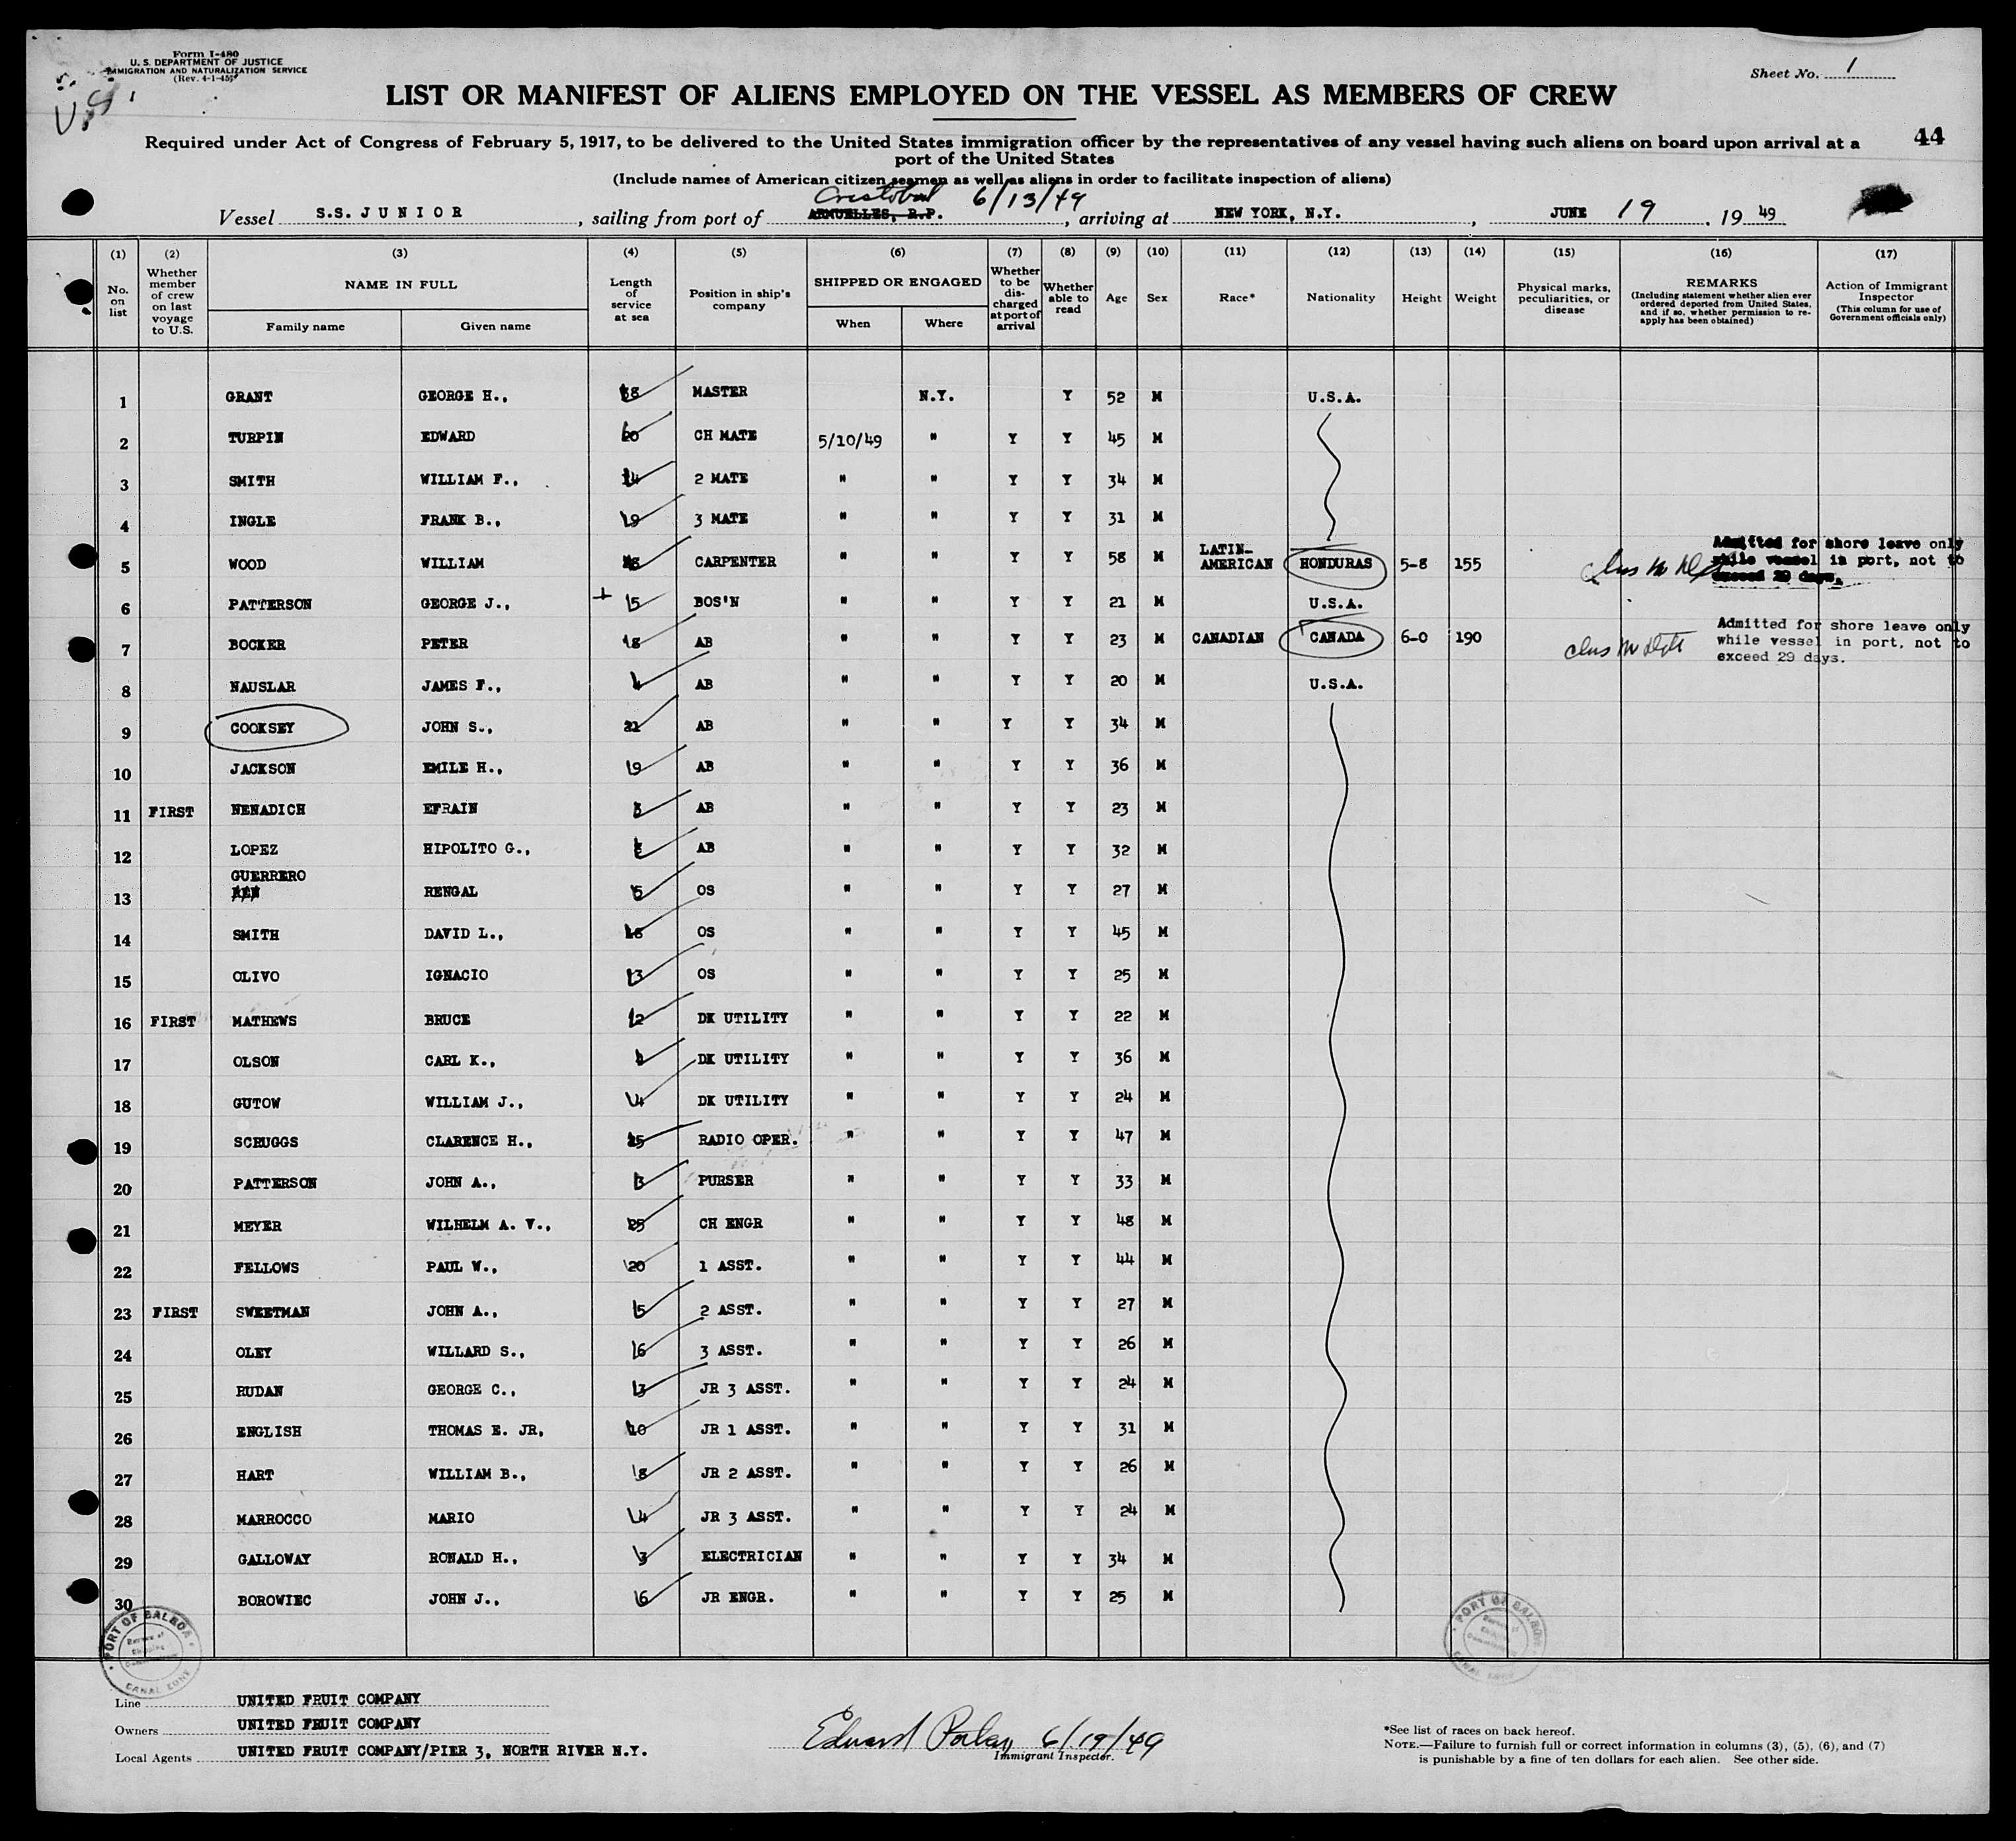 Form I-480
U. S. DEPARTMENT OF JUSTICE
IMMIGRATION AND NATURALIZATION SERVICE
(Rev. 4-1-45)
Sheet No. 1
LIST OR MANIFEST OF ALIENS EMPLOYED ON THE VESSEL AS MEMBERS OF CREW
44
Required under Act of Congress of February 5, 1917, to be delivered to the United States immigration officer by the representatives of any vessel having such aliens on board upon arrival at a
port of the United States
(Include names of American citizen seamen as well as aliens in order to facilitate inspection of aliens)
Cristobal 6/13/49
Vessel S.S. JUNIOR, sailing from port of ARMUELLES, R.P., arriving at NEW YORK, N.Y., JUNE 19, 1949
(1) (2) (3) (4) (5) (6) (7) (8) (9) (10) (11) (12) (13) (14) (15) (16) (17)
No. on list
Whether member of crew on last voyage to U.S.
NAME IN FULL
Family name
Given name
Length of service at sea
Position in ship's company
SHIPPED OR ENGAGED
When
Where
Whether to be discharged at port of arrival
Whether able to read
Age
Sex
Race*
Nationality
Height
Weight
Physical marks, peculiarities, or disease
REMARKS
(Including statement whether alien ever ordered deported from United States, and if so, whether permission to re-apply has been obtained)
Action of Immigrant Inspector
(This column for use of Government officials only)
1 GRANT GEORGE H., MASTER N.Y. Y 52 M U.S.A.
2 TURPIN EDWARD 20 CH MATE 5/10/49 " Y Y 45 M
3 SMITH WILLIAM F., 14 2 MATE " " Y Y 34 M
4 INGLE FRANK B., 9 3 MATE " " Y Y 31 M
5 WOOD WILLIAM CARPENTER " " Y Y 58 M LATIN-AMERICAN HONDURAS 5-8 155 Admitted for shore leave only while vessel in port, not to exceed 29 days.
6 PATTERSON GEORGE J., 5 BOS'N " " Y Y 21 M U.S.A.
7 BOCKER PETER 8 AB " " Y Y 23 M CANADIAN CANADA 6-0 190 Admitted for shore leave only while vessel in port, not to exceed 29 days.
8 NAUSLAR JAMES F., AB " " Y Y 20 M U.S.A.
9 COOKSEY JOHN S., 21 AB " " Y Y 34 M
10 JACKSON EMILE H., 9 AB " " Y Y 36 M
11 FIRST NENADICH EFRAIN AB " " Y Y 23 M
12 LOPEZ HIPOLITO G., AB " " Y Y 32 M
13 GUERRERO RENGAL 5 OS " " Y Y 27 M
14 SMITH DAVID L., OS " " Y Y 45 M
15 OLIVO IGNACIO 3 OS " " Y Y 25 M
16 FIRST MATHEWS BRUCE 2 DK UTILITY " " Y Y 22 M
17 OLSON CARL K., DK UTILITY " " Y Y 36 M
18 GUTOW WILLIAM J., 4 DK UTILITY " " Y Y 24 M
19 SCRUGGS CLARENCE H., 25 RADIO OPER. " " Y Y 47 M
20 PATTERSON JOHN A., 3 PURSER " " Y Y 33 M
21 MEYER WILHELM A. V., 25 CH ENGR " " Y Y 48 M
22 FELLOWS PAUL W., 20 1 ASST. " " Y Y 44 M
23 FIRST SWEETMAN JOHN A., 5 2 ASST. " " Y Y 27 M
24 OLEY WILLARD S., 6 3 ASST. " " Y Y 26 M
25 RUDAN GEORGE C., 3 JR 3 ASST. " " Y Y 24 M
26 ENGLISH THOMAS E. JR, 10 JR 1 ASST. " " Y Y 31 M
27 HART WILLIAM B., 8 JR 2 ASST. " " Y Y 26 M
28 MARROCCO MARIO 4 JR 3 ASST. " " Y Y 24 M
29 GALLOWAY RONALD H., 3 ELECTRICIAN " " Y Y 34 M
30 BOROWIEC JOHN J., 6 JR ENGR. " " Y Y 25 M
PORT OF BALBOA
CANAL ZONE
PORT OF BALBOA
CANAL ZONE
Line UNITED FRUIT COMPANY
Owners UNITED FRUIT COMPANY
Local Agents UNITED FRUIT COMPANY/PIER 3, NORTH RIVER N.Y.
Edward 6/19/49
Immigrant Inspector.
*See list of races on back hereof.
NOTE.—Failure to furnish full or correct information in columns (3), (5), (6), and (7)
is punishable by a fine of ten dollars for each alien. See other side.